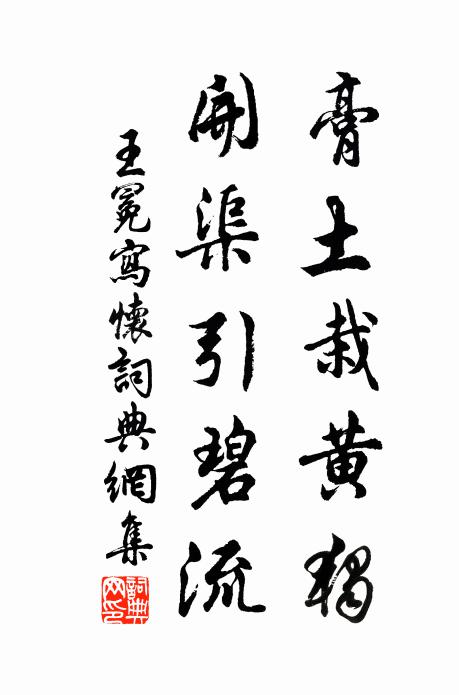 膏土栽黃獨
開渠引碧流
王冕寫懷詞典網集
詞典网印